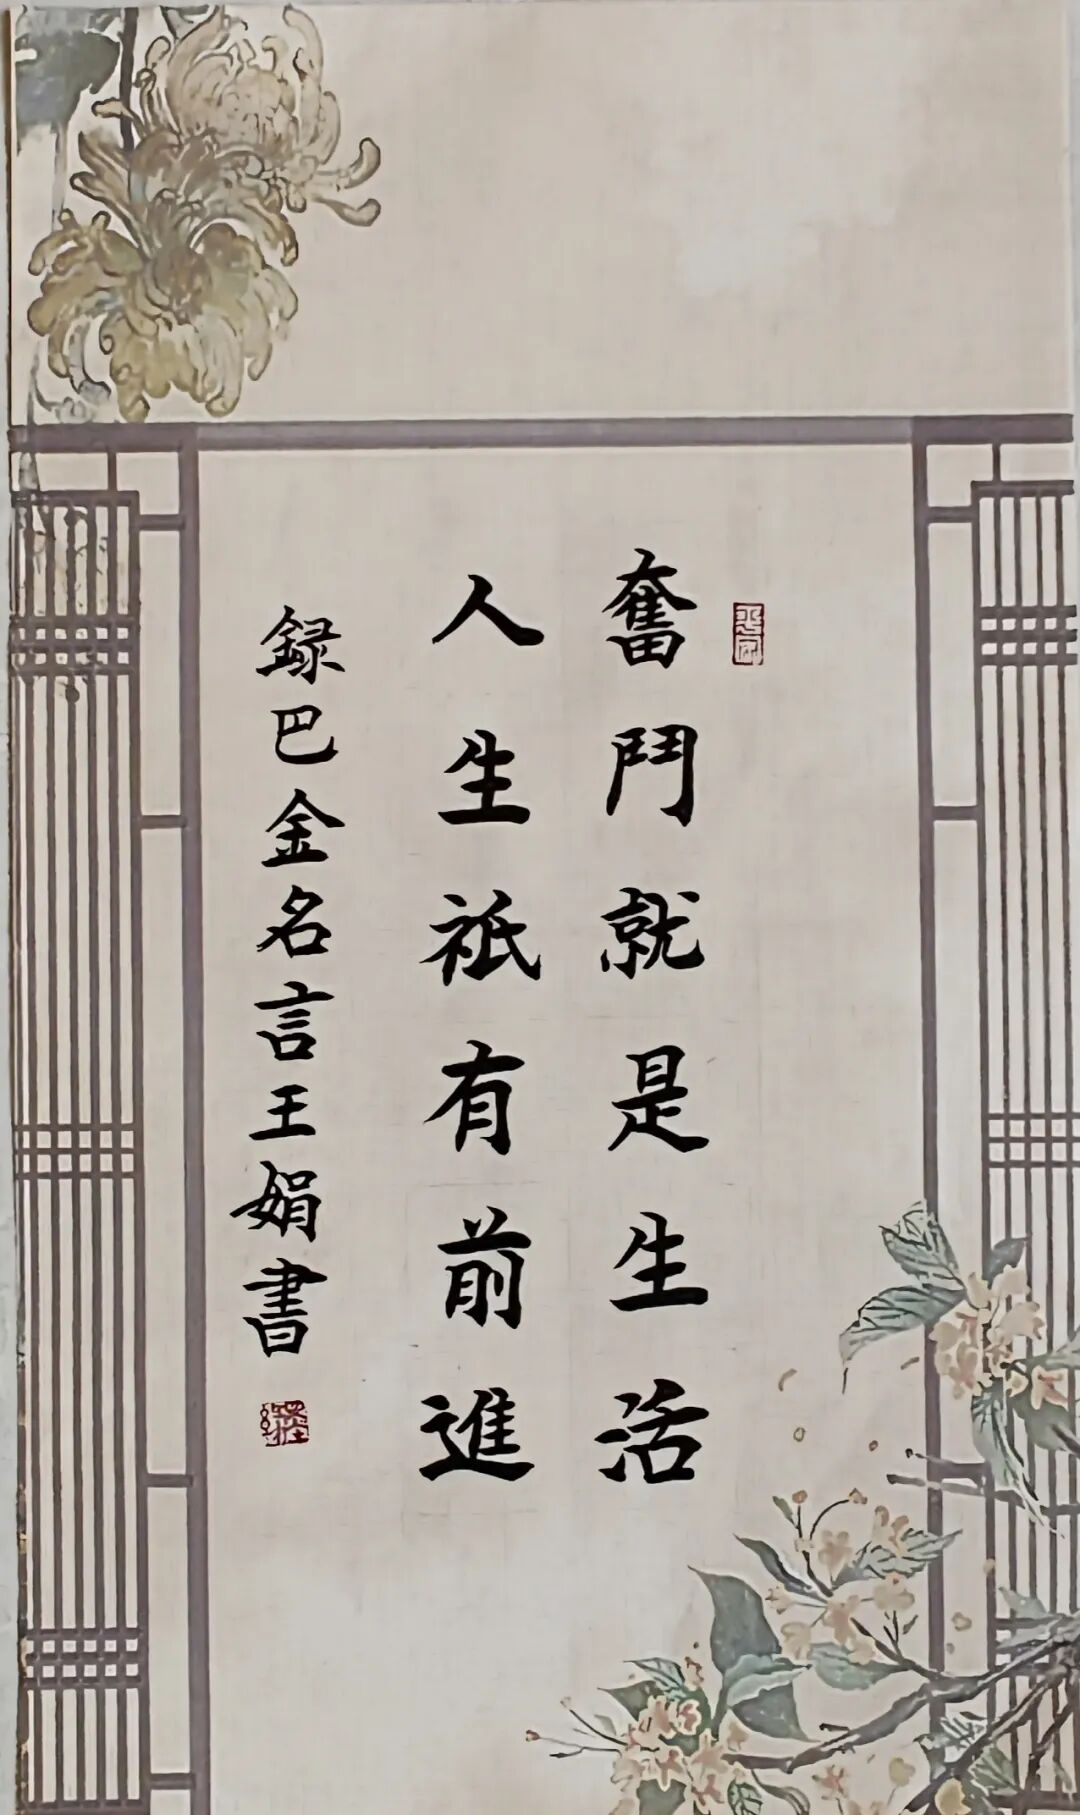 奮鬥就是生活
人生祇有前進
録巴金名言王娟書